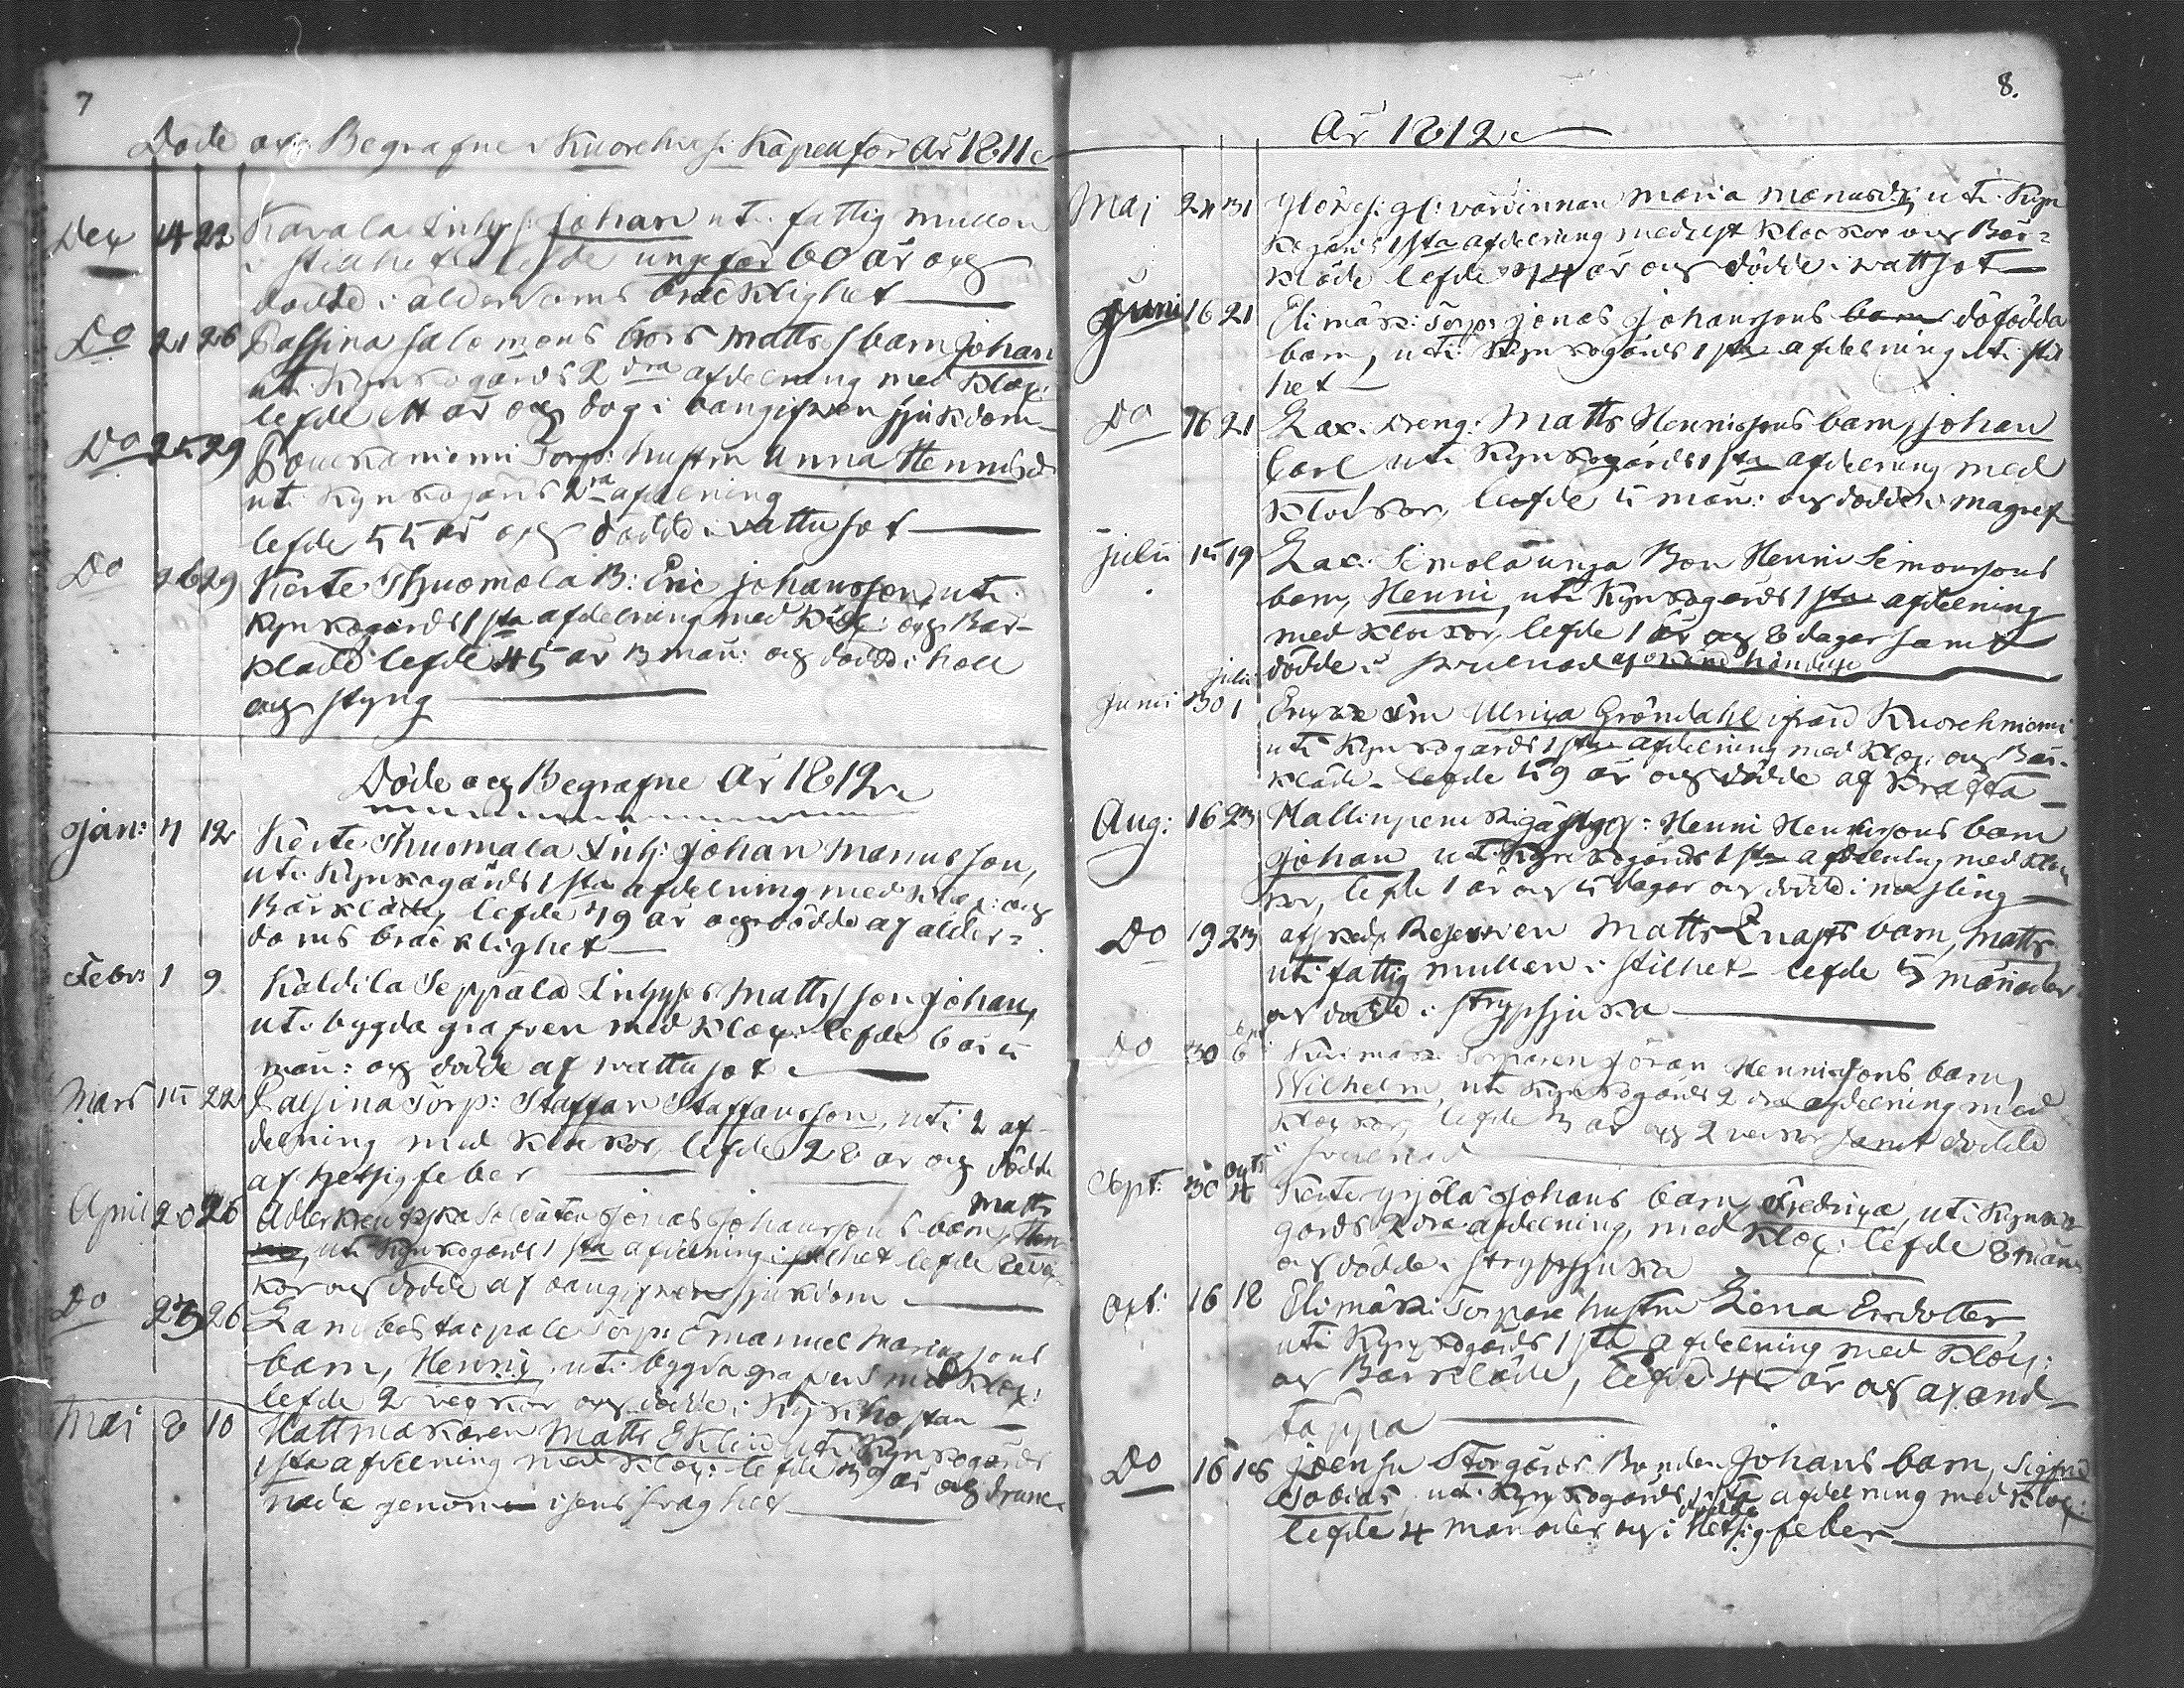 7
Döde och Begrafne i Kuorehvesi Kapell för År 1811
Dec 14 22 Kavala Inhys: Johan uti fattig mullen
i stillhet lefde ungefär 60 år och
dödde i ålderdoms bräcklighet
Do 21 26 Passina Salomons brors Matts barn Johan
uti Kyrkogårds 2dra afdelning med kloc:
lefde ett år och dog i oangifven sjukdom
Do 25 29 Torp: hustru Anna Hennsd:
uti Kyrkogårds 2ra afdelning
lefde 55 år och dödde i vattusot
Do 26 29 Kerte Thuomola B: Eric Johansson, uti
Kyrkogårds 1sta afdelning med kloc: och Bår-
kläde lefde 45 år 3 mån: och dödde i håll
och styng
Döde och Begrafne År 1812
Jan: 4 12 Kerte Thuomala Inh: Johan Manusson,
uti Kyrkogårds 1sta afdelning med kloc: och
Bårkläde, lefde 79 år och dödde af ålder-
doms bräcklighet
Febr: 1 9 Kaldila Seppälä Inhyses Mattsson Johan,
uti bygda grafven med kloc: lefde 6 år 5
mån: och dödde af vattusot
Mars 15 22 Passina Torp: Staffan Staffansson, uti 2 af-
delning med klockor, lefde 28 år och dödde
af hetsig feber
April 20 26 Adlerkreutzska Soldaten Jonas Johanssons barn, Matts
uti Kyrkogårds 1sta afdelning i stillhet lefde
kor och dödde af oangifven sjukdom
Do 23 26 Torp: Emanuel
barn, Henric, uti bygda grafven med kloc:
lefde 2 veckor och dödde i kikhostan
Maj 8 10 Hattmakaren Matts Eklind uti Kyrkogårds
1sta afdelning med kloc: lefde 39 år och drunc-
nade genom isens svaghet
8.
År 1812
Maj 24 31 värdinnan Maria Manusdr, uti Kyr
kogårds 1sta afdelning medelst klockor och Bår-
kläde lefde 74 år och dödde i vattsot
Juni 16 21 Elimäk: Torp: Jonas Johanssons barn dödfödda
barn, uti Kyrkogårds 1sta afdelning uti stil
het
Do 16 21 Lax: Dreng: Matts Hennissons barn, Johan
Carl uti Kyrkogårds 1sta afdelning med
klockor, lefde 5 mån: och dödde i magref
Julii 15 19 Lax: Simola unga Bon Henni Simonssons
barn, Henni, uti Kyrkogårds 1sta afdelning
med klockor, lefde 1 år och 8 dagar samt
dödde i af okänd händelse
Junii 30 Julii 1 Enkefru Ulrica Gröndahl ifrån Kuorehniemi
uti Kyrkogårds 1sta afdelning med kloc: och Bår-
kläde lefde 59 år och dödde af Kräfta
Aug: 16 23 Henni Henrikssons barn
Johan uti Kyrkogårds 1sta afdelning med kloc
kor, lefde 1 år och 5 dagar och dödde i messling
Do 19 23 afsked: Reserven Matts Knapts barn, Matts
uti fattig mullen i stilhet lefde 5 månader
och dödde i strypsjuka
Do 30 6 Torparen Jöran Hennissons barn,
Wilhelm, uti Kyrkogårds 2dra afdelning med
klockor, lefde 3 år och 2 veckor samt dödde
i
Sept: 30 Oct: 4 Kerte Yrjölä Johans barn, Fredrica, uti Kyrko
gårds 2dra afdelning, med kloc: lefde 8 mån:
och dödde i strypsjuka
Oct: 16 18 Elimäki Torpare hustru Lena Ersdotter,
uti Kyrkogårds 1sta afdelning med kloc:
och Bårkläde, lefde 42 år och af and-
täppa
Do 16 18 Joensu Storgårds Bonden Johans barn, Sigfrid
Tobias, uti Kyrkogårds 1sta afdelning med kloc:
lefde 4 månader och dödde i Hetsig feber